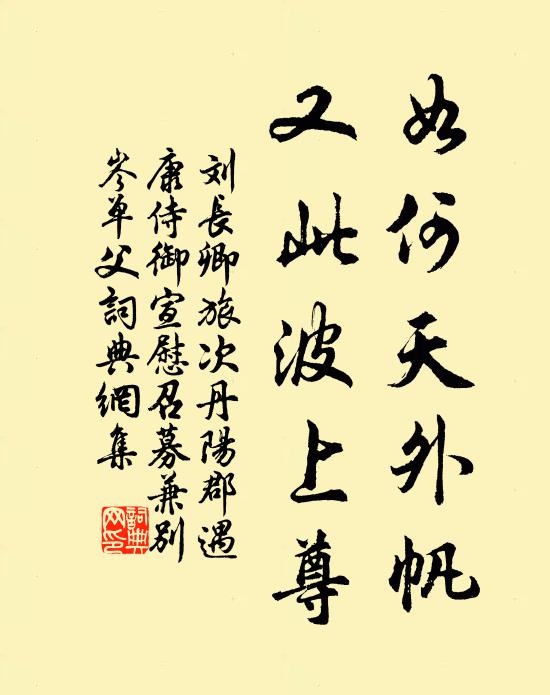 如何天外帆
又此波上尊
刘長卿旅次丹陽郡遇
康侍御宣慰召募兼别
岑单父詞典網集
詞典
网印